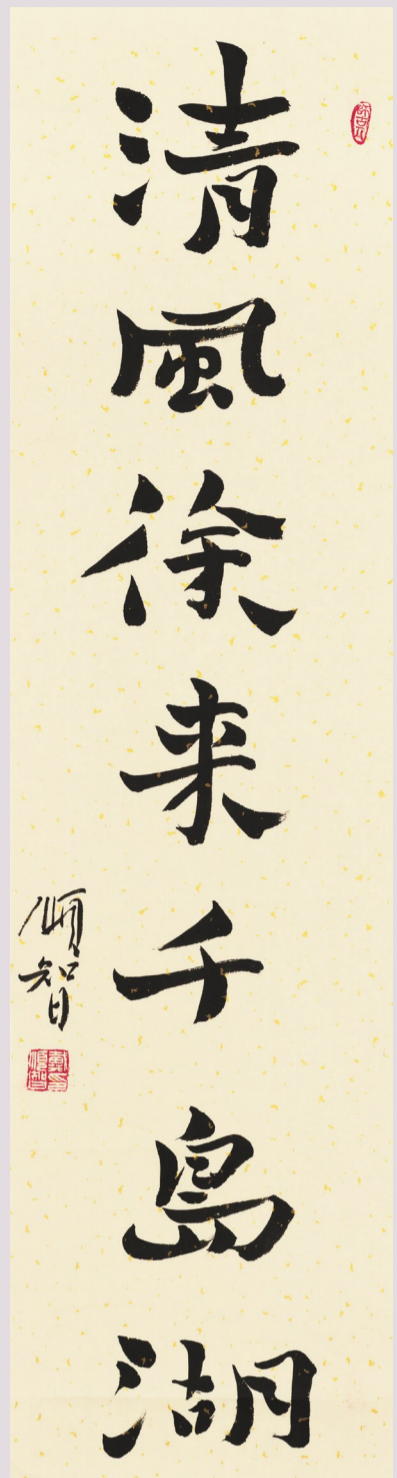 清風徐来千島湖
順智